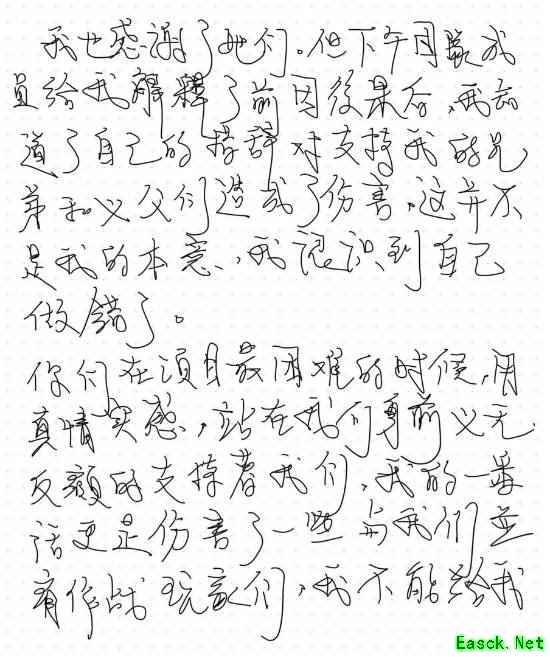 我也感谢了她们。但下午团队成
员给我解释了前因後果后,我知
道了自己的措辞对支持我的兄
弟和义父们造成了伤害,这并不
是我的本意,我认识到自己
做错了。
你们在项目最困难的时候,用
真情实感,站在我们身前义无
反顾的支持着我们,我的一番
话更是伤害了一些与我们並
肩作战玩家们,我不能给我
Easck.Net